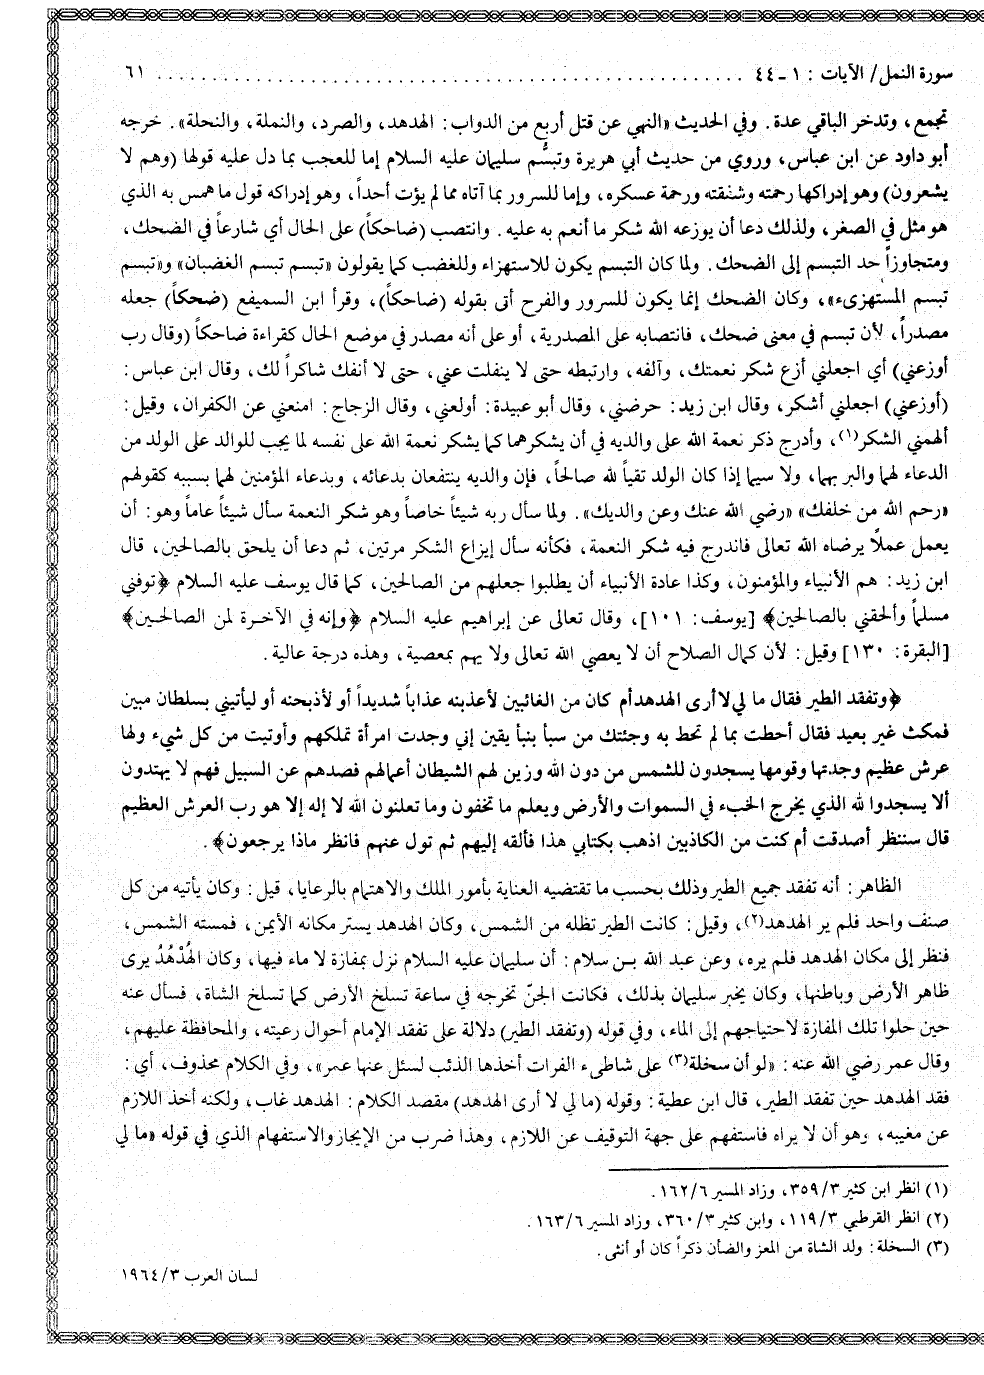 سورة النمل/ الآيات : ١ ـ ٤٤ ........................................................ ٦١
تجمع، وتدخر الباقي عدة. وفي الحديث «النهي عن قتل أربع من الدواب: الهدهد، والصرد، والنملة، والنحلة». خرجه
أبو داود عن ابن عباس، وروي من حديث أبي هريرة وتبسُّم سليمان عليه السلام إما للعجب بما دل عليه قولها (وهم لا
يشعرون) وهو إدراكها رحمته وشفقته ورحمة عسكره، وإما للسرور بما آتاه مما لم يؤت أحداً، وهو إدراكه قول ما همس به الذي
هو مثل في الصغر، ولذلك دعا أن يوزعه الله شكر ما أنعم به عليه. وانتصب (ضاحكاً) على الحال أي شارعاً في الضحك،
ومتجاوزاً حد التبسم إلى الضحك. ولما كان التبسم يكون للاستهزاء وللغضب كما يقولون «تبسم تبسم الغضبان» و«تبسم
تبسم المستهزىء»، وكان الضحك إنما يكون للسرور والفرح أتى بقوله (ضاحكاً)، وقرأ ابن السميفع (ضحكاً) جعله
مصدراً، لأن تبسم في معنى ضحك، فانتصابه على المصدرية، أو على أنه مصدر في موضع الحال كقراءة ضاحكاً (وقال رب
أوزعني) أي اجعلني أزع شكر نعمتك، وآلفه، وارتبطه حتى لا ينفلت عني، حتى لا أنفك شاكراً لك، وقال ابن عباس:
(أوزعني) اجعلني أشكر، وقال ابن زيد: حرضني، وقال أبو عبيدة: أولعني، وقال الزجاج: امنعني عن الكفران، وقيل:
ألهمني الشكر(١)، وأدرج ذكر نعمة الله على والديه في أن يشكرهما كما يشكر نعمة الله على نفسه لما يجب للوالد على الولد من
الدعاء لهما والبر بهما، ولا سيما إذا كان الولد تقياً لله صالحاً، فإن والديه ينتفعان بدعائه، وبدعاء المؤمنين لهما بسببه كقولهم
«رحم الله من خلفك» «رضي الله عنك وعن والديك». ولما سأل ربه شيئاً خاصاً وهو شكر النعمة سأل شيئاً عاماً وهو: أن
يعمل عملاً يرضاه الله تعالى فاندرج فيه شكر النعمة، فكأنه سأل إيزاع الشكر مرتين، ثم دعا أن يلحق بالصالحين، قال
ابن زيد: هم الأنبياء والمؤمنون، وكذا عادة الأنبياء أن يطلبوا جعلهم من الصالحين، كما قال يوسف عليه السلام ﴿توفني
مسلماً وألحقني بالصالحين﴾ [يوسف: ١٠١]، وقال تعالى عن إبراهيم عليه السلام ﴿وإنه في الآخرة لمن الصالحين﴾
[البقرة: ١٣٠] وقيل: لأن كمال الصلاح أن لا يعصي الله تعالى ولا يهم بمعصية، وهذه درجة عالية.
﴿وتفقد الطير فقال ما لي لا أرى الهدهد أم كان من الغائبين لأعذبنه عذاباً شديداً أو لأذبحنه أو ليأتيني بسلطان مبين
فمكث غير بعيد فقال أحطت بما لم تحط به وجئتك من سبأ بنبأ يقين إني وجدت امرأة تملكهم وأوتيت من كل شيء ولها
عرش عظيم وجدتها وقومها يسجدون للشمس من دون الله وزين لهم الشيطان أعمالهم فصدهم عن السبيل فهم لا يهتدون
ألا يسجدوا لله الذي يخرج الخبء في السموات والأرض ويعلم ما تخفون وما تعلنون الله لا إله إلا هو رب العرش العظيم
قال سننظر أصدقت أم كنت من الكاذبين اذهب بكتابي هذا فألقه إليهم ثم تول عنهم فانظر ماذا يرجعون﴾.
الظاهر: أنه تفقد جميع الطير وذلك بحسب ما تقتضيه العناية بأمور الملك والاهتمام بالرعايا، قيل: وكان يأتيه من كل
صنف واحد فلم ير الهدهد(٢)، وقيل: كانت الطير تظله من الشمس، وكان الهدهد يستر مكانه الأيمن، فمسته الشمس،
فنظر إلى مكان الهدهد فلم يره، وعن عبد الله بن سلام: أن سليمان عليه السلام نزل بمفازة لا ماء فيها، وكان الهُدْهُدُ يرى
ظاهر الأرض وباطنها، وكان يخبر سليمان بذلك، فكانت الجنّ تخرجه في ساعة تسلخ الأرض كما تسلخ الشاة، فسأل عنه
حين حلوا تلك المفازة لاحتياجهم إلى الماء، وفي قوله (وتفقد الطير) دلالة على تفقد الإمام أحوال رعيته، والمحافظة عليهم،
وقال عمر رضي الله عنه: «لو أن سخلة(٣) على شاطىء الفرات أخذها الذئب لسئل عنها عمر»، وفي الكلام محذوف، أي:
فقد الهدهد حين تفقد الطير، قال ابن عطية: وقوله (ما لي لا أرى الهدهد) مقصد الكلام: الهدهد غاب، ولكنه أخذ اللازم
عن مغيبه، وهو أن لا يراه فاستفهم على جهة التوقيف عن اللازم، وهذا ضرب من الإيجاز والاستفهام الذي في قوله «ما لي
(١) انظر ابن كثير ٣/ ٣٥٩، وزاد المسير ٦/ ١٦٢.
(٢) انظر القرطبي ٣/ ١١٩، وابن كثير ٣/ ٣٦٠، وزاد المسير ٦/ ١٦٣.
(٣) السخلة: ولد الشاة من المعز والضأن ذكراً كان أو أنثى.
لسان العرب ٣/ ١٩٦٤